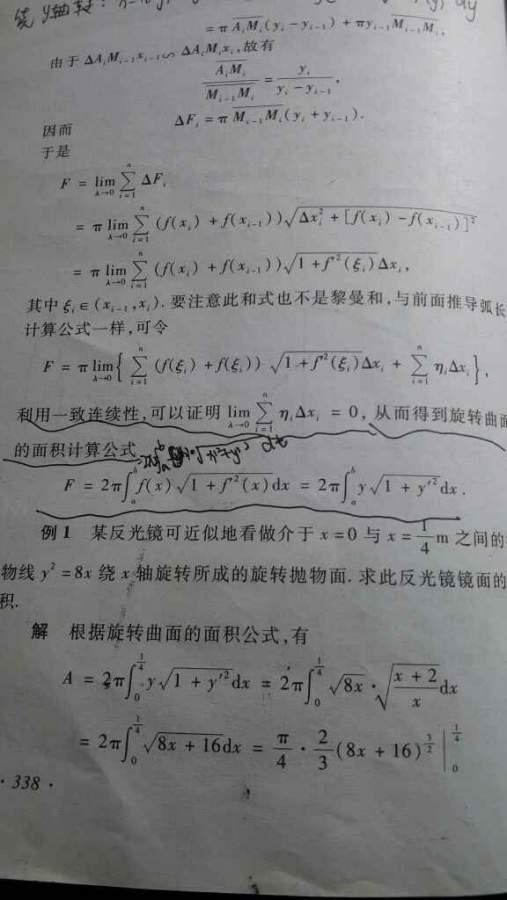 绕 y轴转:
= π A_iM_i (y_i − y_{i−1}) + πy_{i−1} M_{i−1}M_i,
由于 ΔA_iM_{i−1}x_{i−1} ∽ ΔA_iM_ix_i, 故有
A_iM_i / M_{i−1}M_i = y_i / (y_i − y_{i−1}),
因而 ΔF_i = π M_{i−1}M_i (y_i + y_{i−1}).
于是
F = lim_{λ→0} ∑_{i=1}^{n} ΔF_i
= π lim_{λ→0} ∑_{i=1}^{n} (f(x_i) + f(x_{i−1})) √(Δx_i^2 + [f(x_i) − f(x_{i−1})]^2)
= π lim_{λ→0} ∑_{i=1}^{n} (f(x_i) + f(x_{i−1})) √(1 + f'^2(ξ_i)) Δx_i,
其中 ξ_i ∈ (x_{i−1}, x_i). 要注意此和式也不是黎曼和,与前面推导弧长
计算公式一样,可令
F = π lim_{λ→0} { ∑_{i=1}^{n} (f(ξ_i) + f(ξ_i)) √(1 + f'^2(ξ_i)) Δx_i + ∑_{i=1}^{n} η_iΔx_i },
利用一致连续性,可以证明 lim_{λ→0} ∑_{i=1}^{n} η_iΔx_i = 0, 从而得到旋转曲面
的面积计算公式
F = 2π∫_a^b f(x) √(1 + f'^2(x)) dx = 2π∫_a^b y √(1 + y'^2) dx.
例 1 某反光镜可近似地看做介于 x = 0 与 x = 1/4 m 之间的
物线 y^2 = 8x 绕 x 轴旋转所成的旋转抛物面. 求此反光镜镜面的
积.
解 根据旋转曲面的面积公式,有
A = 2π∫_0^{1/4} y √(1 + y'^2) dx = 2π∫_0^{1/4} √(8x) · √((x + 2)/x) dx
= 2π∫_0^{1/4} √(8x + 16) dx = π/4 · 2/3 (8x + 16)^{3/2} |_0^{1/4}
· 338 ·